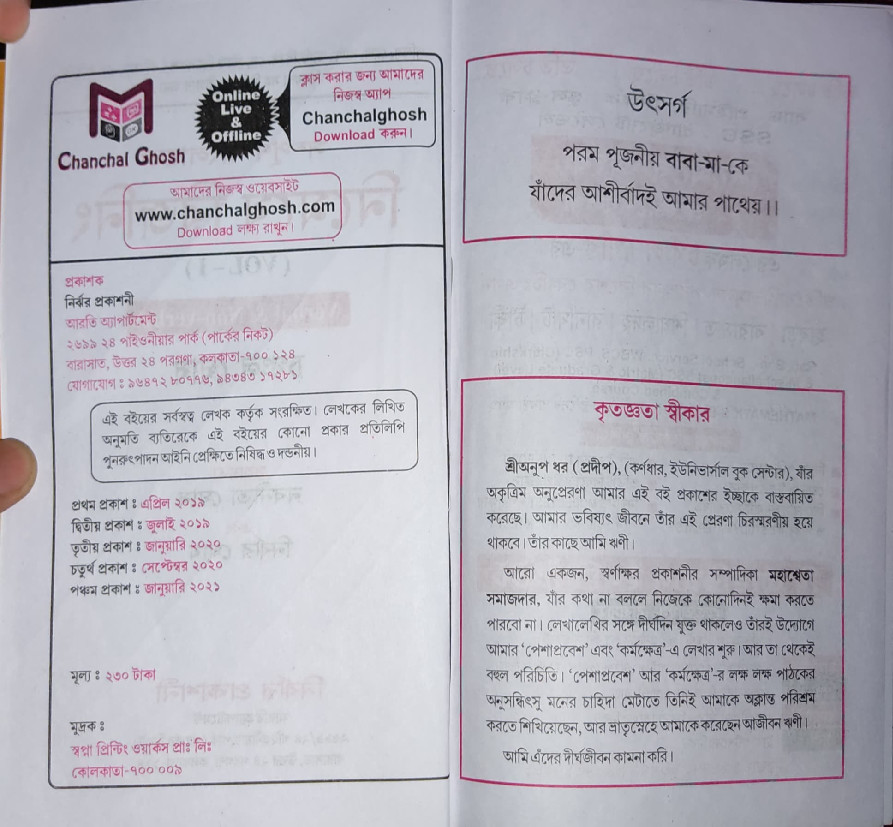 Chanchal Ghosh
Online
Live
&
Offline
ক্লাস করার জন্য আমাদের
নিজস্ব অ্যাপ
Chanchalghosh
Download করুন।
আমাদের নিজস্ব ওয়েবসাইট
www.chanchalghosh.com
Download লক্ষ্য রাখুন।
প্রকাশক
নির্ঝর প্রকাশনী
আরতি অ্যাপার্টমেন্ট
২৬৯৯ ২৪ পাইওনীয়ার পার্ক (পার্কের নিকট)
বারাসাত, উত্তর ২৪ পরগণা, কলকাতা-৭০০ ১২৪
যোগাযোগ : ৯৬৪৭২ ৮০৭৭৬, ৯৪৩৪৩ ১৭২৮১
এই বইয়ের সর্বস্বত্ব লেখক কর্তৃক সংরক্ষিত। লেখকের লিখিত
অনুমতি ব্যতিরেকে এই বইয়ের কোনো প্রকার প্রতিলিপি
পুনরুৎপাদন আইনি প্রেক্ষিতে নিষিদ্ধ ও দন্ডনীয়।
প্রথম প্রকাশ : এপ্রিল ২০১৯
দ্বিতীয় প্রকাশ : জুলাই ২০১৯
তৃতীয় প্রকাশ : জানুয়ারি ২০২০
চতুর্থ প্রকাশ : সেপ্টেম্বর ২০২০
পঞ্চম প্রকাশ : জানুয়ারি ২০২১
মূল্য : ২৩০ টাকা
মুদ্রক :
স্বপ্না প্রিন্টিং ওয়ার্কস প্রাঃ লিঃ
কোলকাতা-৭০০ ০০৯
উৎসর্গ
পরম পূজনীয় বাবা-মা-কে
যাঁদের আশীর্বাদই আমার পাথেয়।।
কৃতজ্ঞতা স্বীকার
শ্রীঅনুপ ধর (প্রদীপ), (কর্ণধার, ইউনিভার্সাল বুক সেন্টার), যাঁর
অকৃত্রিম অনুপ্রেরণা আমার এই বই প্রকাশের ইচ্ছাকে বাস্তবায়িত
করেছে। আমার ভবিষ্যৎ জীবনে তাঁর এই প্রেরণা চিরস্মরণীয় হয়ে
থাকবে। তাঁর কাছে আমি ঋণী।
আরো একজন, স্বর্ণাক্ষর প্রকাশনীর সম্পাদিকা মহাশ্বেতা
সমাজদার, যাঁর কথা না বললে নিজেকে কোনোদিনই ক্ষমা করতে
পারবো না। লেখালেখির সঙ্গে দীর্ঘদিন যুক্ত থাকলেও তাঁরই উদ্যোগে
আমার ‘পেশাপ্রবেশ’ এবং ‘কর্মক্ষেত্র’-এ লেখার শুরু। আর তা থেকেই
বহুল পরিচিতি। ‘পেশাপ্রবেশ’ আর ‘কর্মক্ষেত্র’-র লক্ষ লক্ষ পাঠকের
অনুসন্ধিৎসু মনের চাহিদা মেটাতে তিনিই আমাকে অক্লান্ত পরিশ্রম
করতে শিখিয়েছেন, আর ভ্রাতৃস্নেহে আমাকে করেছেন আজীবন ঋণী।
আমি এঁদের দীর্ঘজীবন কামনা করি।